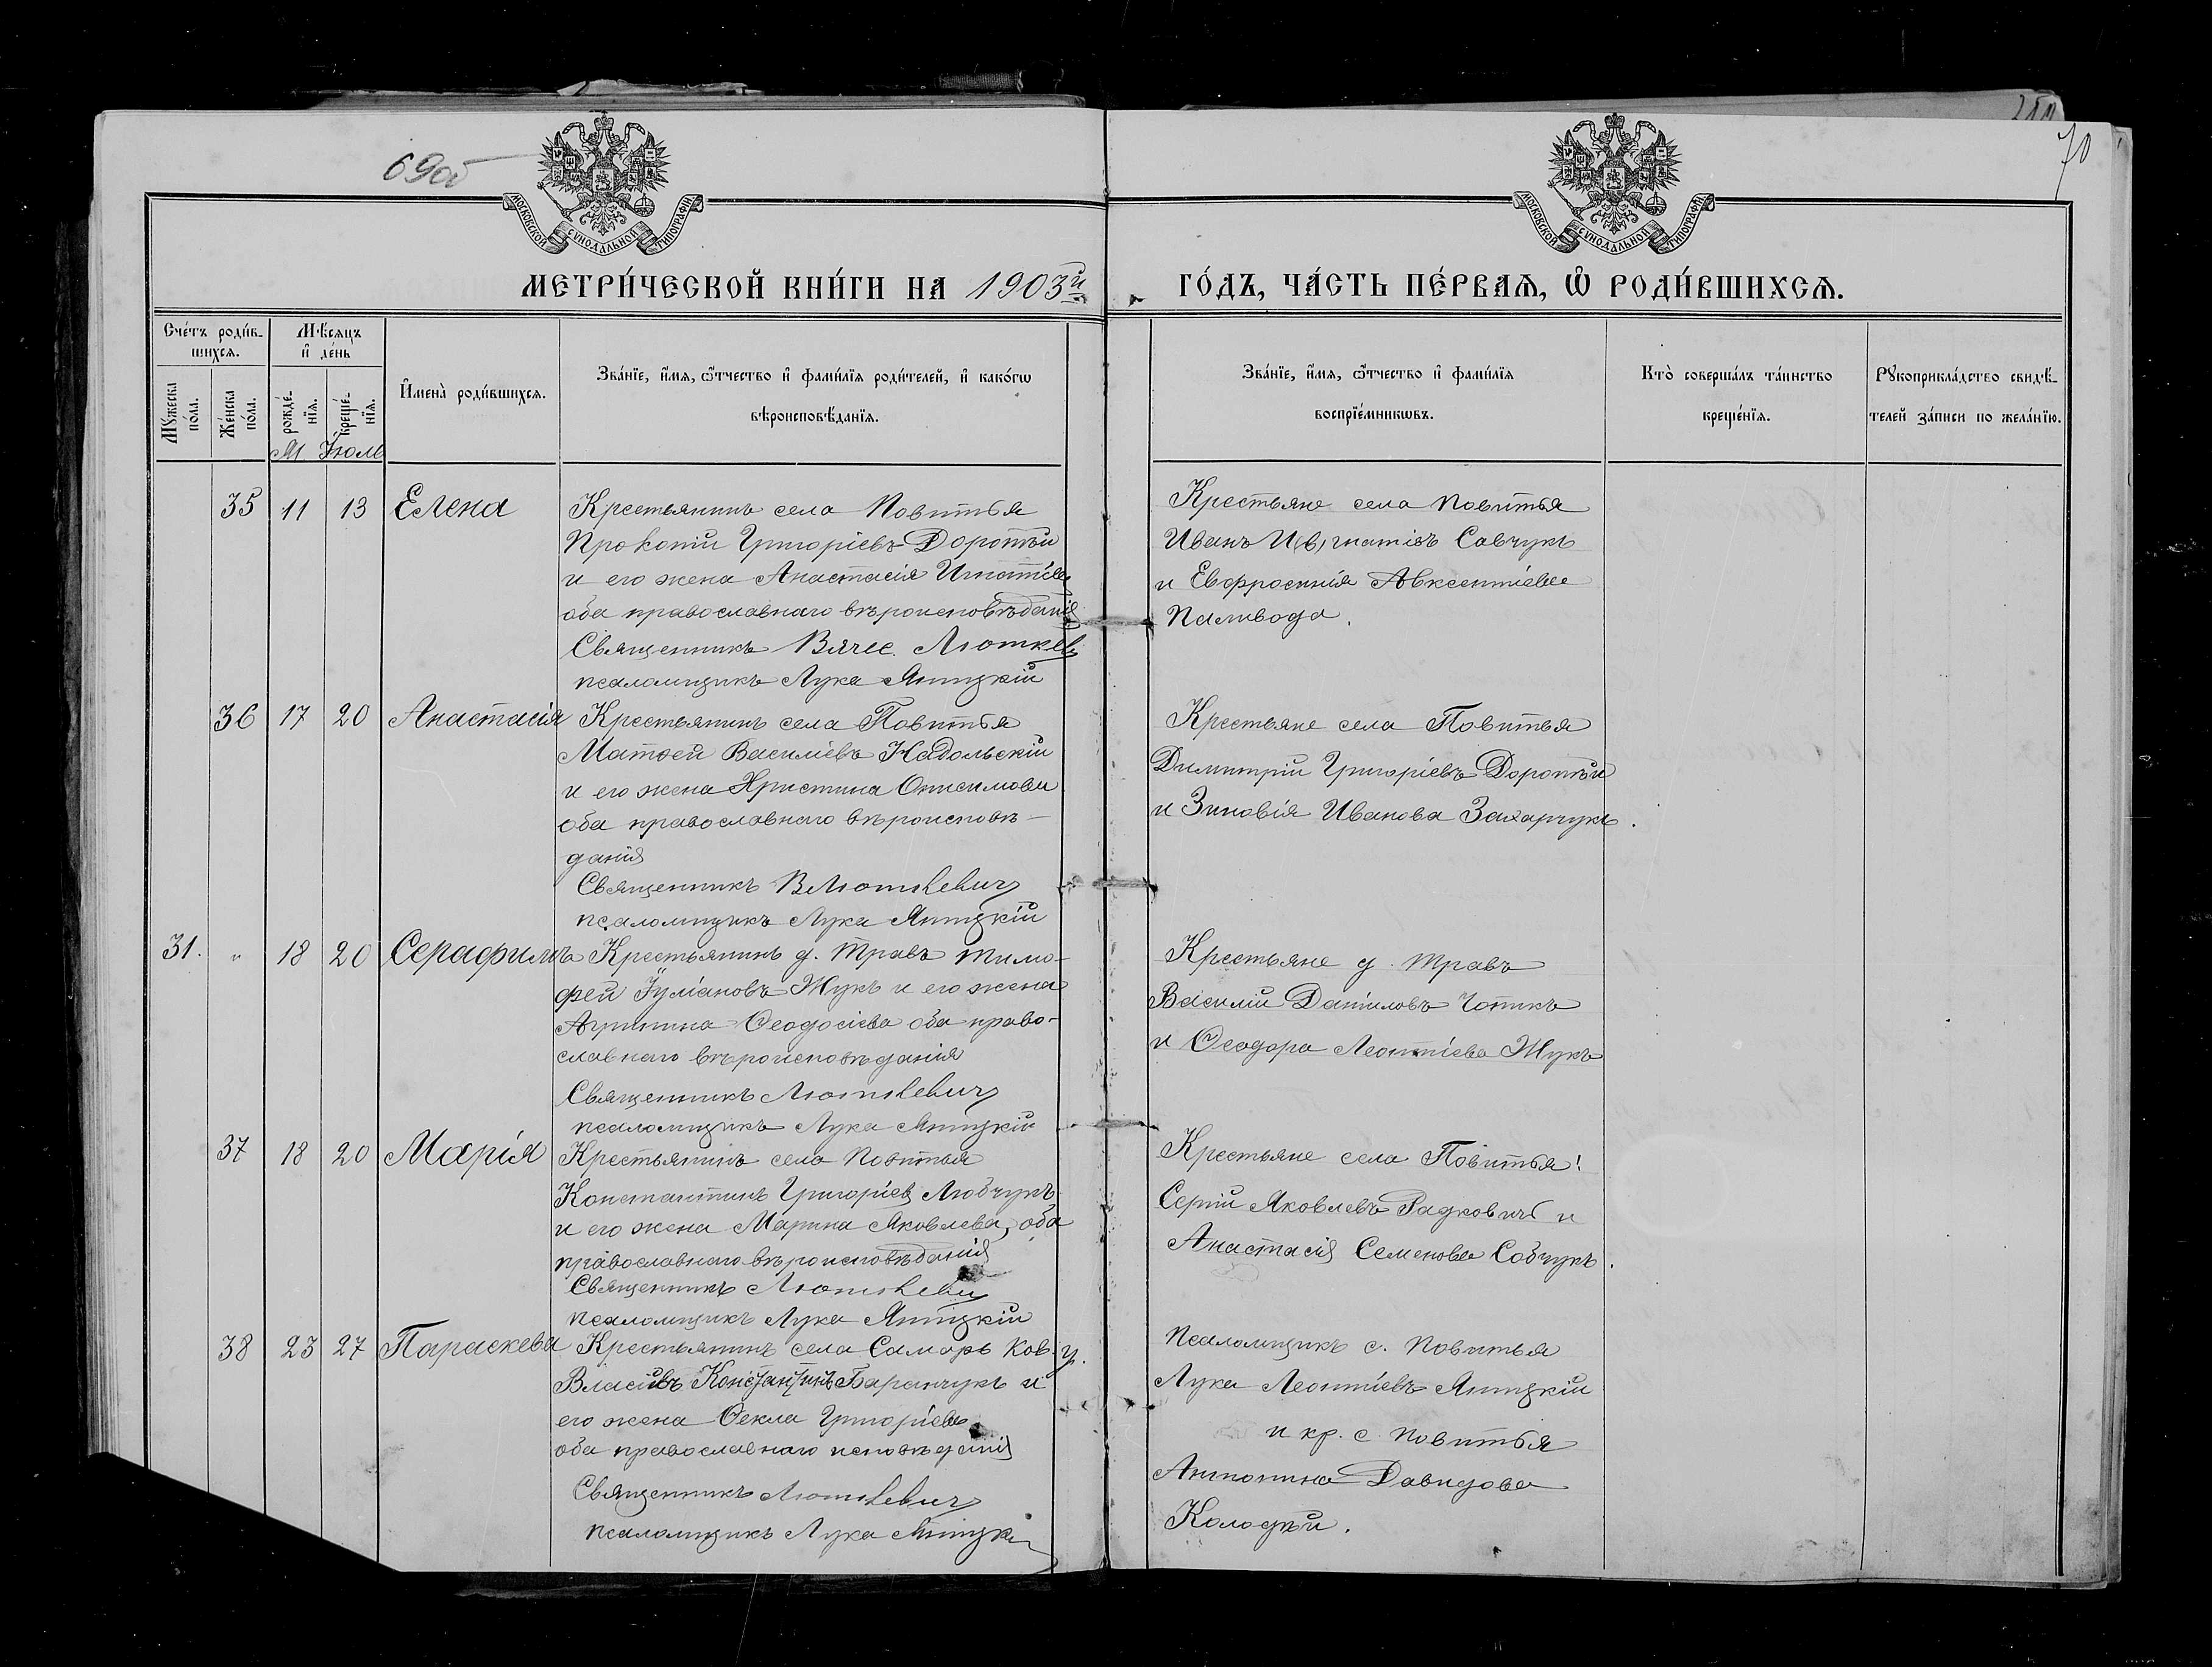 69об
70
МОСКОВСКОЙ СѴНОДАЛЬНОЙ ТИПОГРАФІИ
МОСКОВСКОЙ СѴНОДАЛЬНОЙ ТИПОГРАФІИ
МЕТРИ́ЧЕСКОЙ КНИ́ГИ НА 1903й
ГО́ДЪ, ЧА́СТЬ ПЕ́РВАѦ, Ѡ҆ РОДИ́ВШИХСѦ.
Сче́тъ роди́в-
шихсѧ.
Мѣ́сѧцъ
и҆ де́нь
Мꙋ́жеска по́ла.
Же́нска по́ла.
рожде́-нїѧ.
креще́-нїѧ.
М. Іюль
И҆мена̀ роди́вшихсѧ.
Зва́нїе, и҆́мѧ, ѻ҆́тчество и҆ фами́лїѧ роди́телей, и҆ како́гѡ
вѣроисповѣ́данїѧ.
Зва́нїе, и҆́мѧ, ѻ҆́тчество и҆ фами́лїѧ
воспрїе́мникѡвъ.
Кто̀ соверша́лъ та́инство
креще́нїѧ.
Рꙋкоприкла́дство свидѣ́-
телей за́писи по жела́нїю.
35 11 13 Елена
Крестьянинъ села Повитья
Прокопій Григоріевъ Доротѣй
и его жена Анастасія Игнатіева
оба православнаго вѣроисповѣданія
Священникъ Вячес. Люткев
псаломщикъ Лука Япицкій
Крестьяне села Повитья
Иванъ Игнатіевъ Савчукъ
и Евфросинія Авксентіева
Паливода.
36 17 20 Анастасія
Крестьянинъ села Повитья
Матфей Василіевъ Надольскій
и его жена Христина Онисимова
оба православнаго вѣроисповѣ-
данія
Священникъ В Люткевичъ
псаломщикъ Лука Япицкій
Крестьяне села Повитья
Димитрій Григоріевъ Доротѣй
и Зиновія Иванова Захарчукъ.
31. " 18 20 Серафимъ
Крестьянинъ д. Травъ Тимо-
фей Іуліановъ Жукъ и его жена
Агрипина Ѳеодосіева оба право-
славнаго вѣроисповѣданія
Священникъ Люткевичъ
псаломщикъ Лука Япицкій
Крестьяне д. Травъ
Василій Даніиловъ Чопикъ
и Ѳеодора Леонтіева Жукъ
37 18 20 Марія
Крестьянинъ села Повитья
Константинъ Григоріев Любчукъ
и его жена Марина Яковлева, оба
православнаго вѣроисповѣданія
Священникъ Люткевич
псаломщикъ Лука Япицкій
Крестьяне села Повитья:
Сергій Яковлевъ Радковичъ и
Анастасія Семенова Собчукъ.
38 23 27 Параскева
Крестьянинъ села Самаръ Ков. у.
Власіевъ Константинъ Баранчукъ и
его жена Ѳекла Григоріева
оба православнаго исповѣданія
Священникъ Люткевичъ
псаломщикъ Лука Япицкі
Псаломщикъ с. Повитья
Лука Леонтіевъ Япицкій
и кр. с. Повитья
Антонина Давидова
Колодѣй.